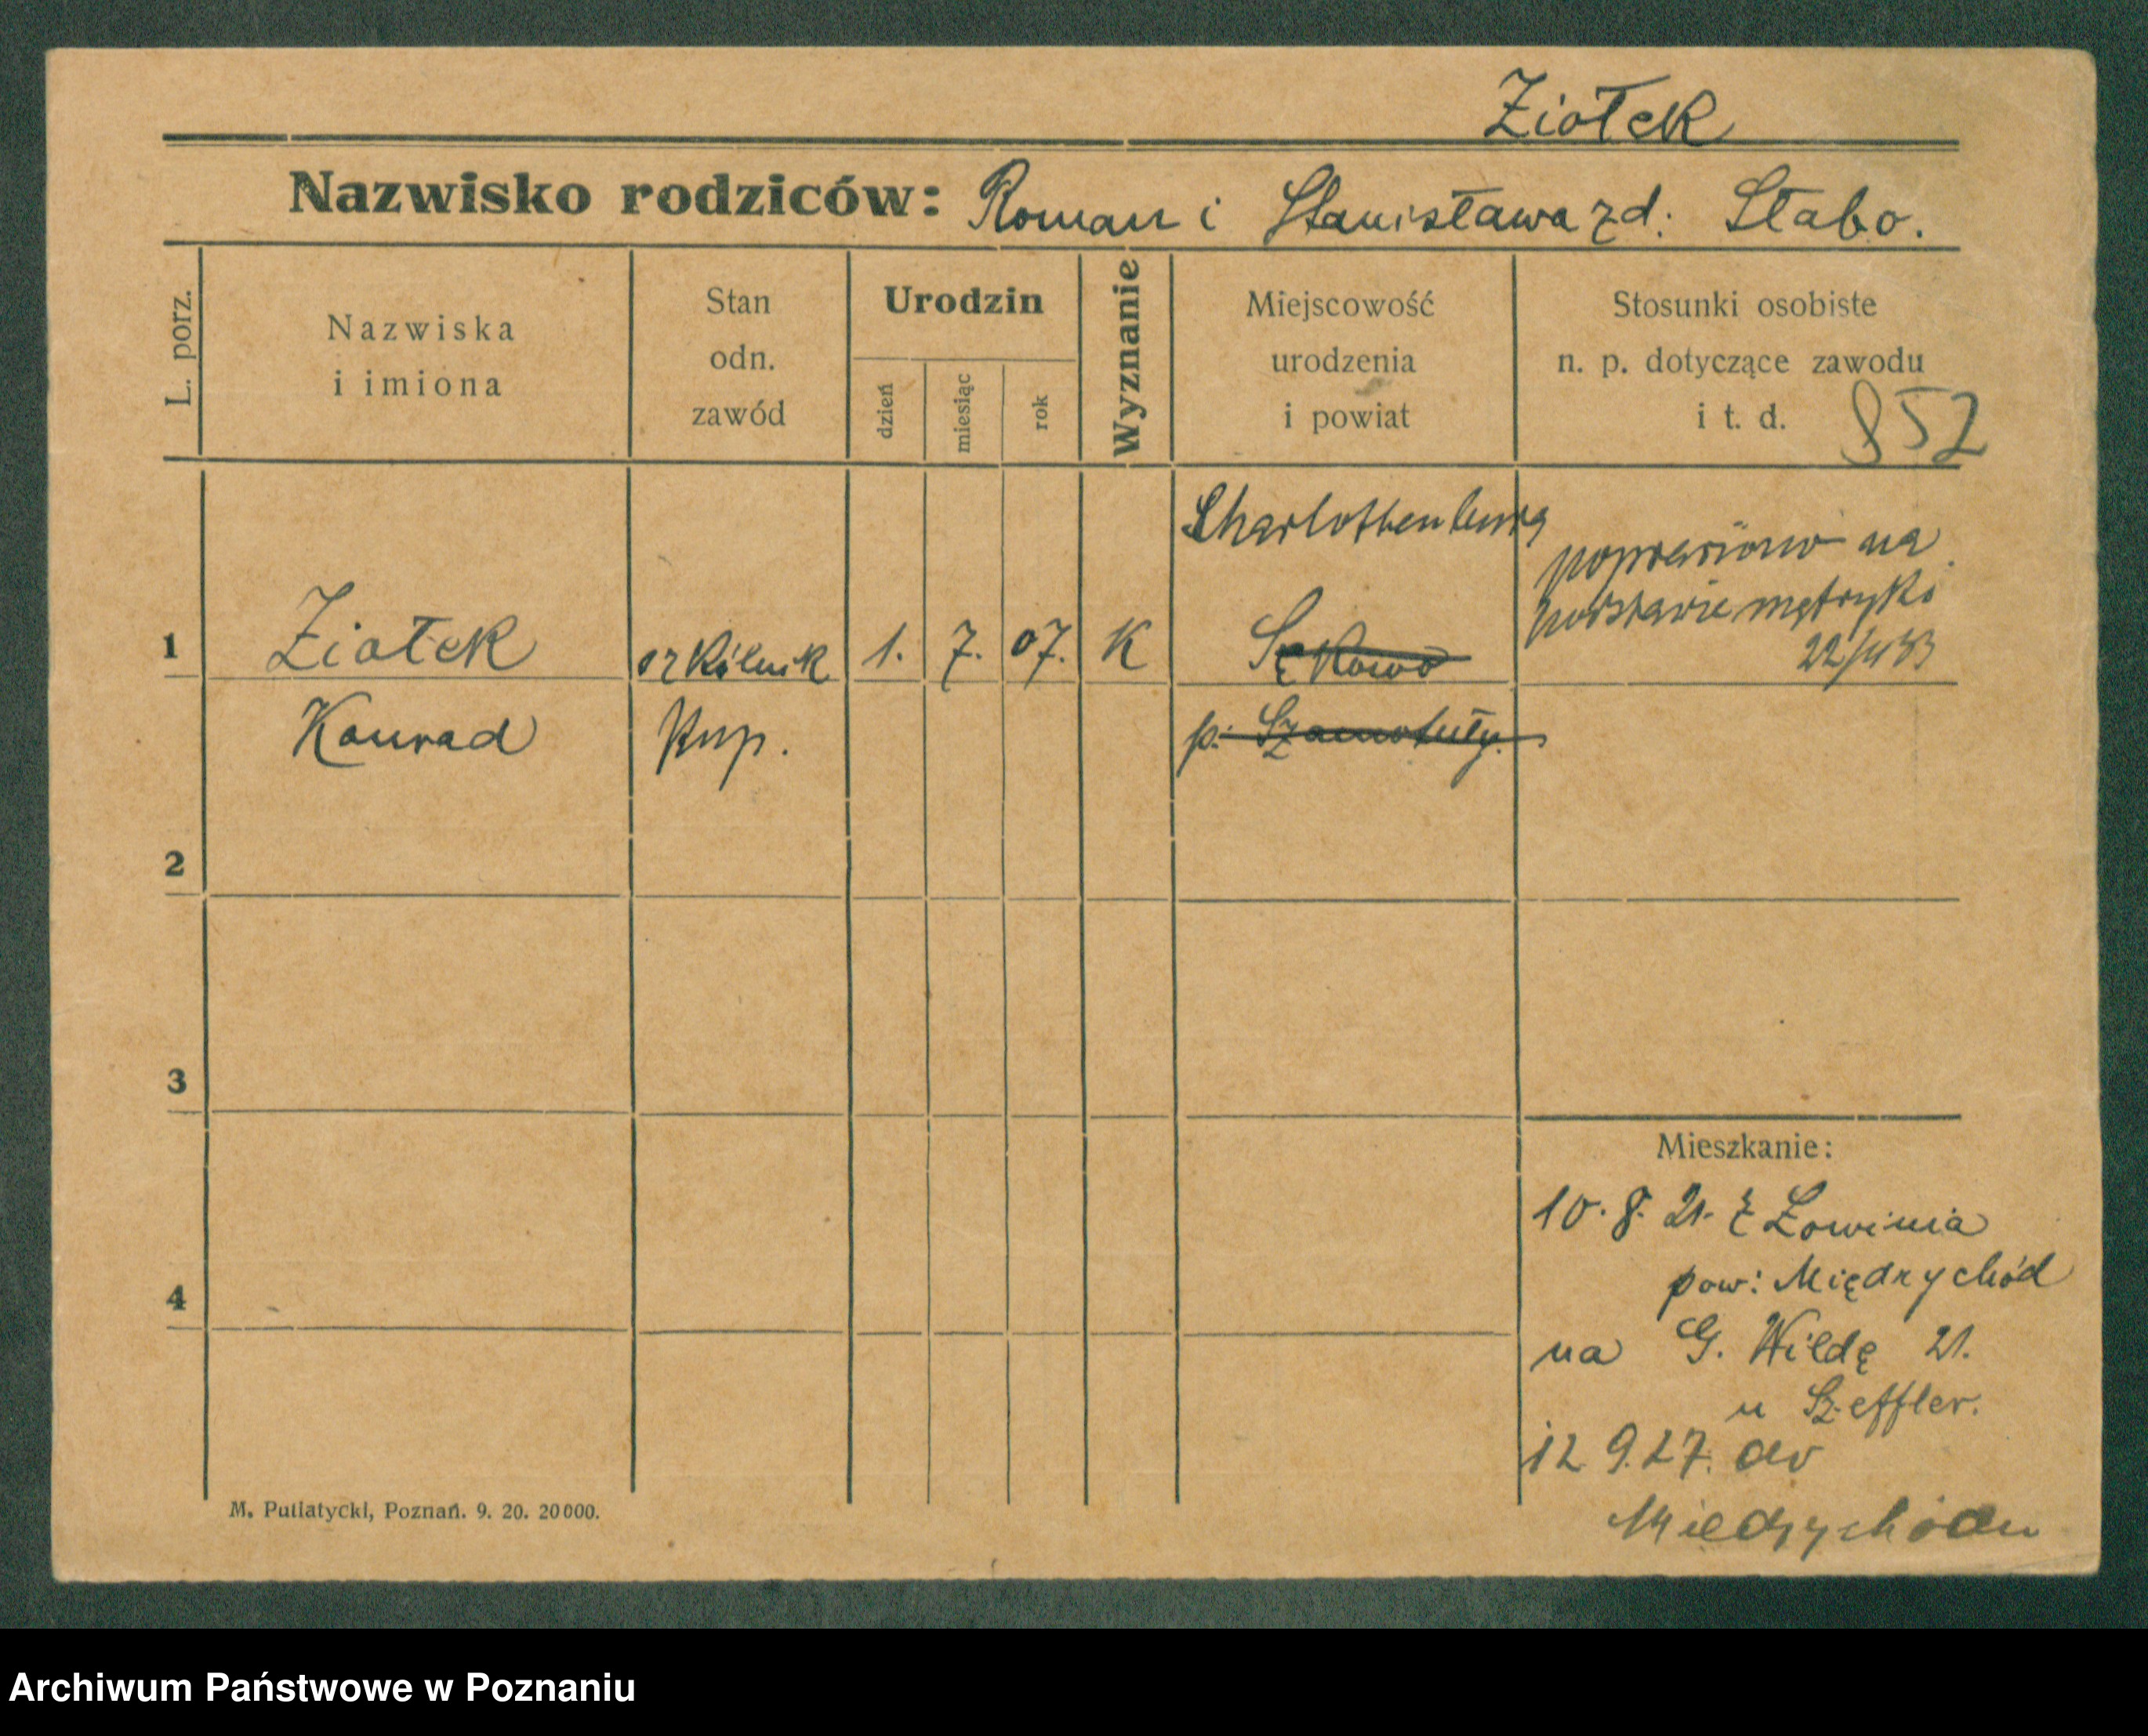 Ziołek
Nazwisko rodziców: Roman i Stanisława zd: Słabo.
L. porz.
Nazwiska
i imiona
Stan
odn.
zawód
Urodzin
dzień
miesiąc
rok
Wyznanie
Miejscowość
urodzenia
i powiat
Stosunki osobiste
n. p. dotyczące zawodu
i t. d.
852
Charlottenburg
poprawiono na
podstawie metryki
22/4 33
1 Ziołek 1. 7. 07. K Sękowo
Konrad kup. p. Szamotuły.
2
3
4
Mieszkanie:
10. 8. 21. z Łowinia
pow: Międzychód
na G. Wildę 21.
u Szeffler.
12 9.27. do
Miedzychodu
M. Putiatycki, Poznań. 9. 20. 20000.
Archiwum Państwowe w Poznaniu